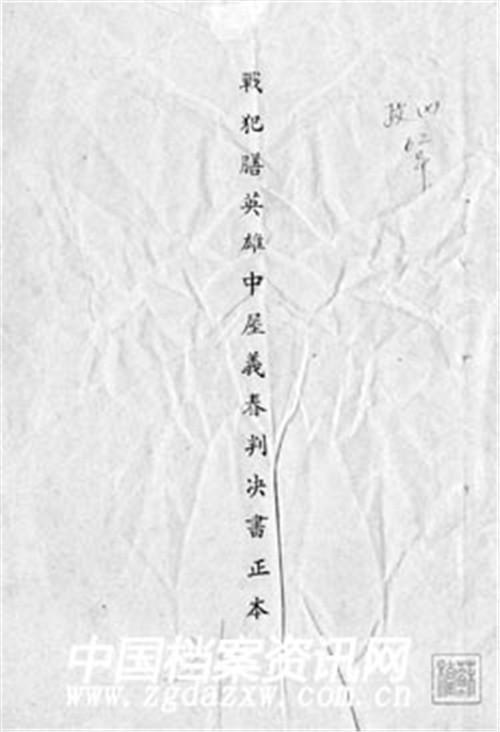 戰犯膳英雄中屋義春判决書正本
中国档案资讯网
www.zgdazxw.com.cn